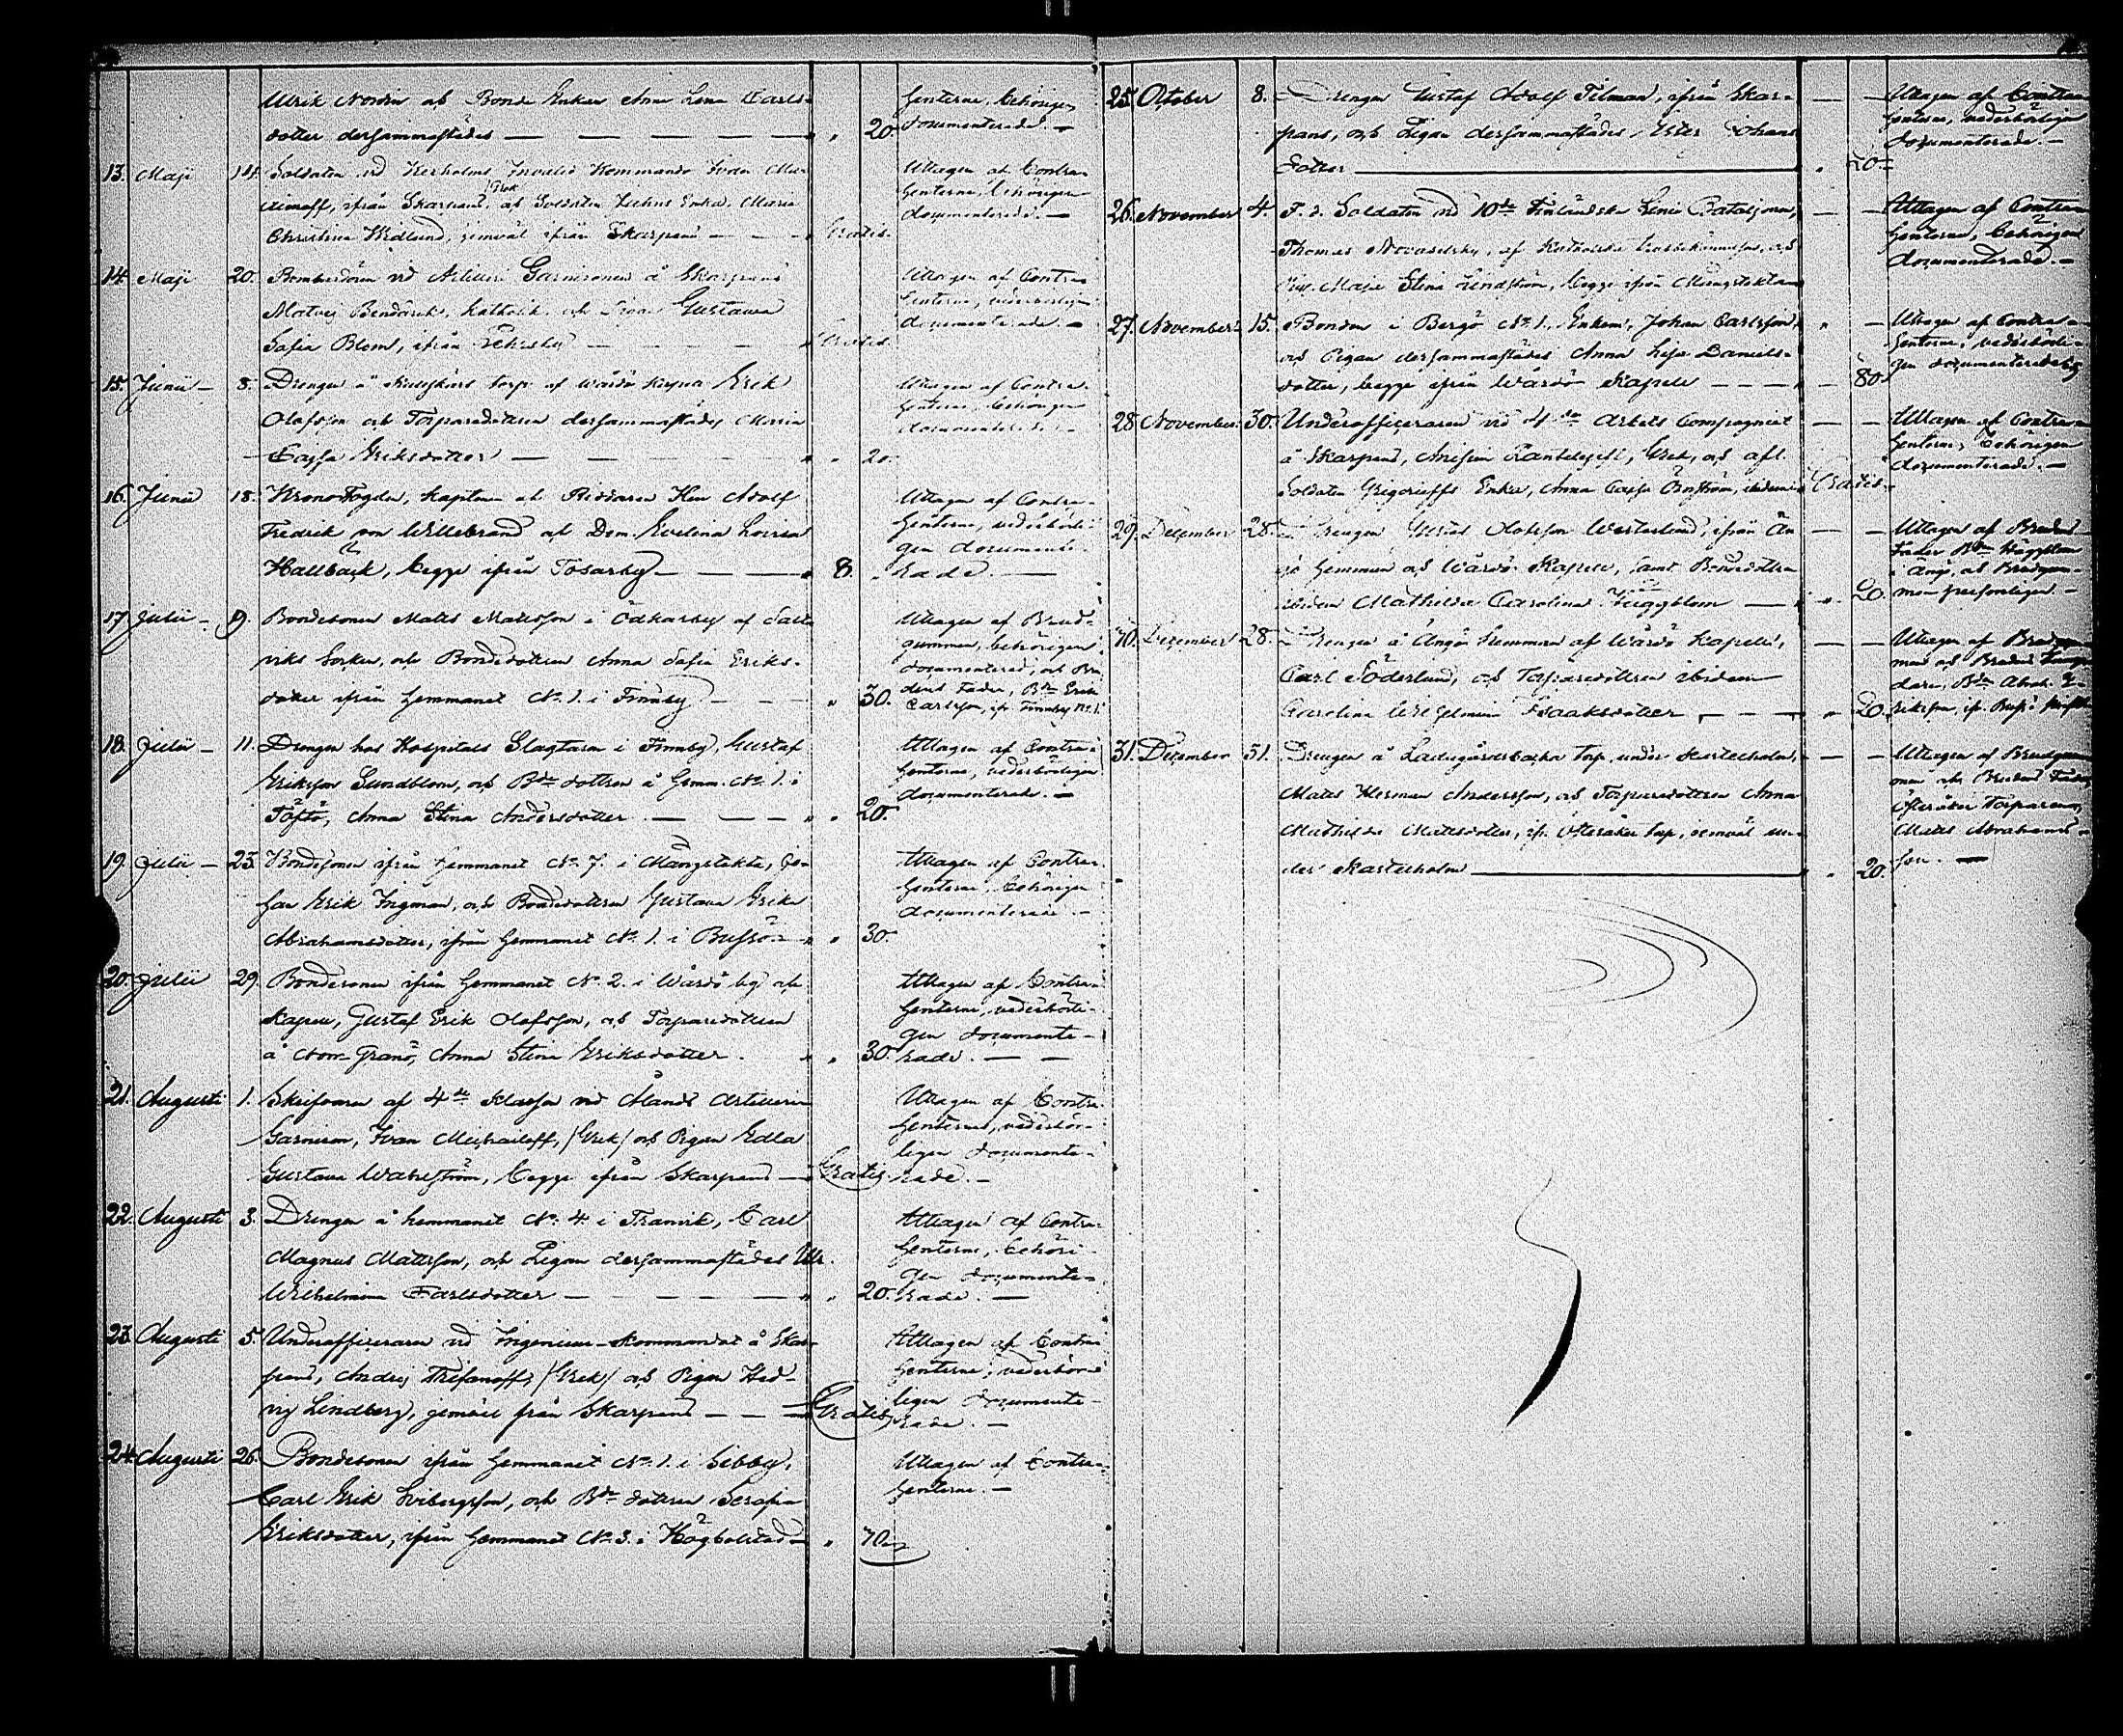 Ulrik Nordin och Bonde Enkan Anna Lena Carls-
dotter dersammastädes — — — — — " " 20.
Genterne, behörigen
documenterade. —
13. Maji 14. Soldaten vid Kexholms Invalid Kommando Ivan
/Grek/
ifrån Skarpans, och Soldaten Enka, Maria
Christina Widlund, jemväl ifrån Skarpans — — Gratis.
Uttagen af Contra-
henterne, behörigen
documenterade. —
14. Maji 20. Bombardören vid Artilleri Garnisonen å Skarpans
Matvej Katholik, och Pigan Gustava
Sofia Blom, ifrån — — — Gratis.
Uttagen af Contra-
henterne, vederbörligen
documenterade. —
15. Junii — 8. Drengen å torp af Wårdö Erik
Olofsson och Torparedottren dersammastädes Maria
Cajsa Eriksdotter — — — — " " 20.
Uttagen af Contra-
henterne, behörigen
documenterade. —
16. Junii 18. Krono Fogden, Kapten och Riddaren Herr Adolf
Fredrik von Willebrand och Dem. Evelina Lovisa
Hallbäck, begge ifrån Tosarby — — — " 8. "
Uttagen af Contra-
henterne, vederbörli-
gen documente-
rade. —
17. Julii — 9. Bondesonen Mats Matsson i Ödkarby af Salt-
viks Socken, och Bondedottren Anna Sofia Eriks-
dotter ifrån hemmanet No. 1. i Finnby — — — " 30.
Uttagen af Brud-
gummen, behörigen
documenterad, och Bru-
dens Fader, Bdn Erik
Carlsson, ifr. Finnby No. 1.
18. Julii — 11. Drengen hos Hospitals Slagtaren i Finnby, Gustaf
Eriksson Sundblom, och Bde dottren å Hemm. No. 1. i
Töftö, Anna Stina Andersdotter. — — — " " 20.
Uttagen af Contra-
henterne, vederbörligen
documenterade. —
19. Julii — 23. Bondesonen ifrån hemmanet No. 7. i Mångstekta, Jo-
han Erik Ingman, och Bondedottren Gustava Erika
Abrahamsdotter, ifrån hemmanet No. 1. i Bussö — " " 30.
Uttagen af Contra-
henterne, behörigen
documenterade. —
20. Julii 29. Bondesonen ifrån hemmanet No. 2. i Wårdö by och
Kapell, Gustaf Erik Olofsson, och Torparedottren
å Norr Granö, Anna Stina Eriksdotter. " " 30.
Uttagen af Contra-
henterne, vederbörli-
gen documente-
rade. — —
21. Augusti 1. Skrifvaren af 4de Klassen vid Ålands Artilleri
Garnison, Ivan Michailoff, /Grek/ och Pigan Edla
Gustava Wahlström, begge ifrån Skarpans — Gratis.
Uttagen af Contra-
henterne, vederbör-
ligen documente-
rade. —
22. Augusti 3. Drengen å hemmanet No. 4 i Tranvik, Carl
Magnus Mattsson, och Pigan dersammastädes Ulr.
Wilhelmina Carlsdotter — — — — — " " 20.
Uttagen af Contra-
henterne, behöri-
gen documente-
rade. —
23. Augusti 5. Underofficeraren vid Ingenieur-Kommandot å Skar-
pans, Andrej Trifanoff, /Grek/ och Pigan Hed-
vig Lindberg, jemväl från Skarpans — — — Gratis.
Uttagen af Contra-
henterne, vederbör-
ligen documente-
rade. —
24. Augusti 26. Bondesonen ifrån hemmanet No. 1. i Sibby,
Carl Erik Sviberggson, och Bde dottren Serafia
Eriksdotter, ifrån hemmanet No. 3. i Högbolstad — " 70.
Uttagen af Contra-
henterne. —
25. October 8. Drengen Gustaf Adolf Tilman, ifrån Skar-
pans, och Pigan dersammastädes, Johans
dotter — " 20.
Uttagen af Contra-
henterne, vederbörligen
documenterade. —
26. November 4. F. d. Soldaten vid 10de Finländska Linie Bataljonen,
Thomas Novaselsky, af Katholska trosbekännelsen, och
Pig. Maja Stina Lindström, begge ifrån Mångstekta
Uttagen af Contra-
henterne, behörigen
documenterade. —
27. November 15. Bonden i Bergö No. 1., Enkem. Johan Carlsson,
och Pigan dersammastädes Anna Lisa Daniels-
dotter, begge ifrån Wårdö Kapell — — — 80.
Uttagen af Contra-
henterne, vederbörli-
gen documenterade
28. November 30. Underofficeraren vid Arbets Compagniet
å Skarpans, Anisim Grek, och afl.
Soldaten Grigorieffs Enka, Anna Cajsa Öhnström, ibidem Gratis.
Uttagen af Contra-
henterne, behörigen
documenterade. —
29. December 28. Drengen Gustaf Olofsson Westerlund, ifrån Än-
gö hemman och Wårdö Kapell, samt Bondedottren
ibidem Mathilda Carolina Häggblom — " " 20.
Uttagen af Brudens
Fader Bdn Häggblom
i Ängö, och Brudgum-
men personligen. —
30. December 28. Drengen å Ängö Hemman af Wårdö Kapell,
Carl Söderlund, och Torparedottren ibidem
Carolina Wilhelmina Isaaksdotter — — — " 20.
Uttagen af Brudgum-
men och Brudens
31. December 31. Drengen å Ladugårdsbacka torp, under Kastelholm,
Mats Herman Andersson, och Torparedottren Anna
Mathilda Matsdotter, ifr. Österåker torp, jemväl un-
der Kastelholm — " 20.
Uttagen af Brudgum-
men och Brudens Fader,
Österåker Torparen,
Mats Abrahams-
son. —